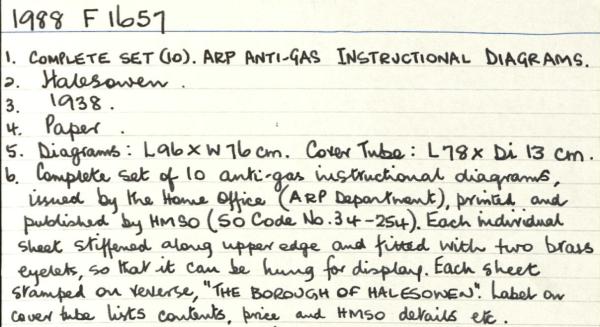 1988 F 1657
1. COMPLETE SET (10). ARP ANTI-GAS INSTRUCTIONAL DIAGRAMS.
2. Halesowen.
3. 1938.
4. Paper.
5. Diagrams: L96 x W 76 cm. Cover Tube: L78 x Di 13 cm.
6. Complete set of 10 anti-gas instructional diagrams,
issued by the Home Office (ARP Department), printed and
published by HMSO (SO Code No. 34-254). Each individual
sheet stiffened along upper edge and fitted with two brass
eyelets, so that it can be hung for display. Each sheet
stamped on reverse, "THE BOROUGH OF HALESOWEN". Label on
cover tube lists contents, price and HMSO details etc.